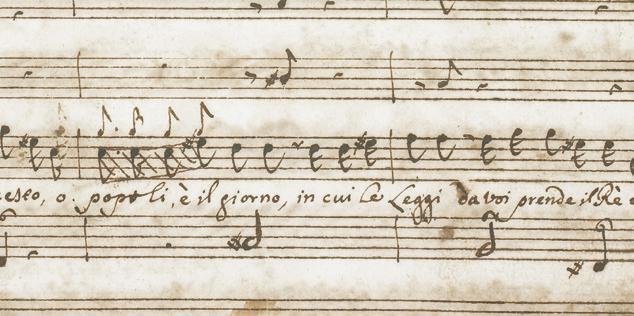 esto, o popoli, è il giorno, in cui le Leggi da voi prende il Rè